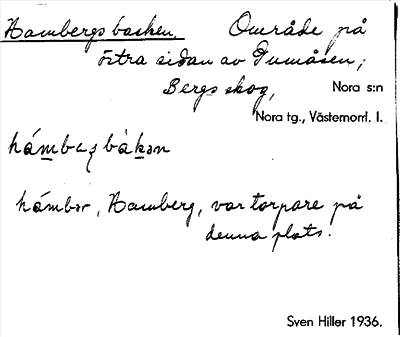 Hambergsbacken. Område på
östra sidan av Dumåsen,
Bergs skog, Nora s:n
Nora tg., Västernorrl. l.
hámbærs bàkən
hámbær, Hamberg, var torpare på
denna plats.
Sven Hiller 1936.